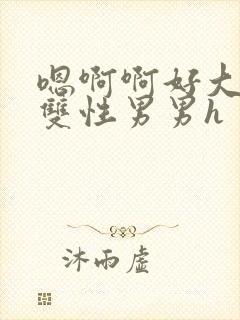 嗯啊啊好大
雙性男男h
沐雨虛